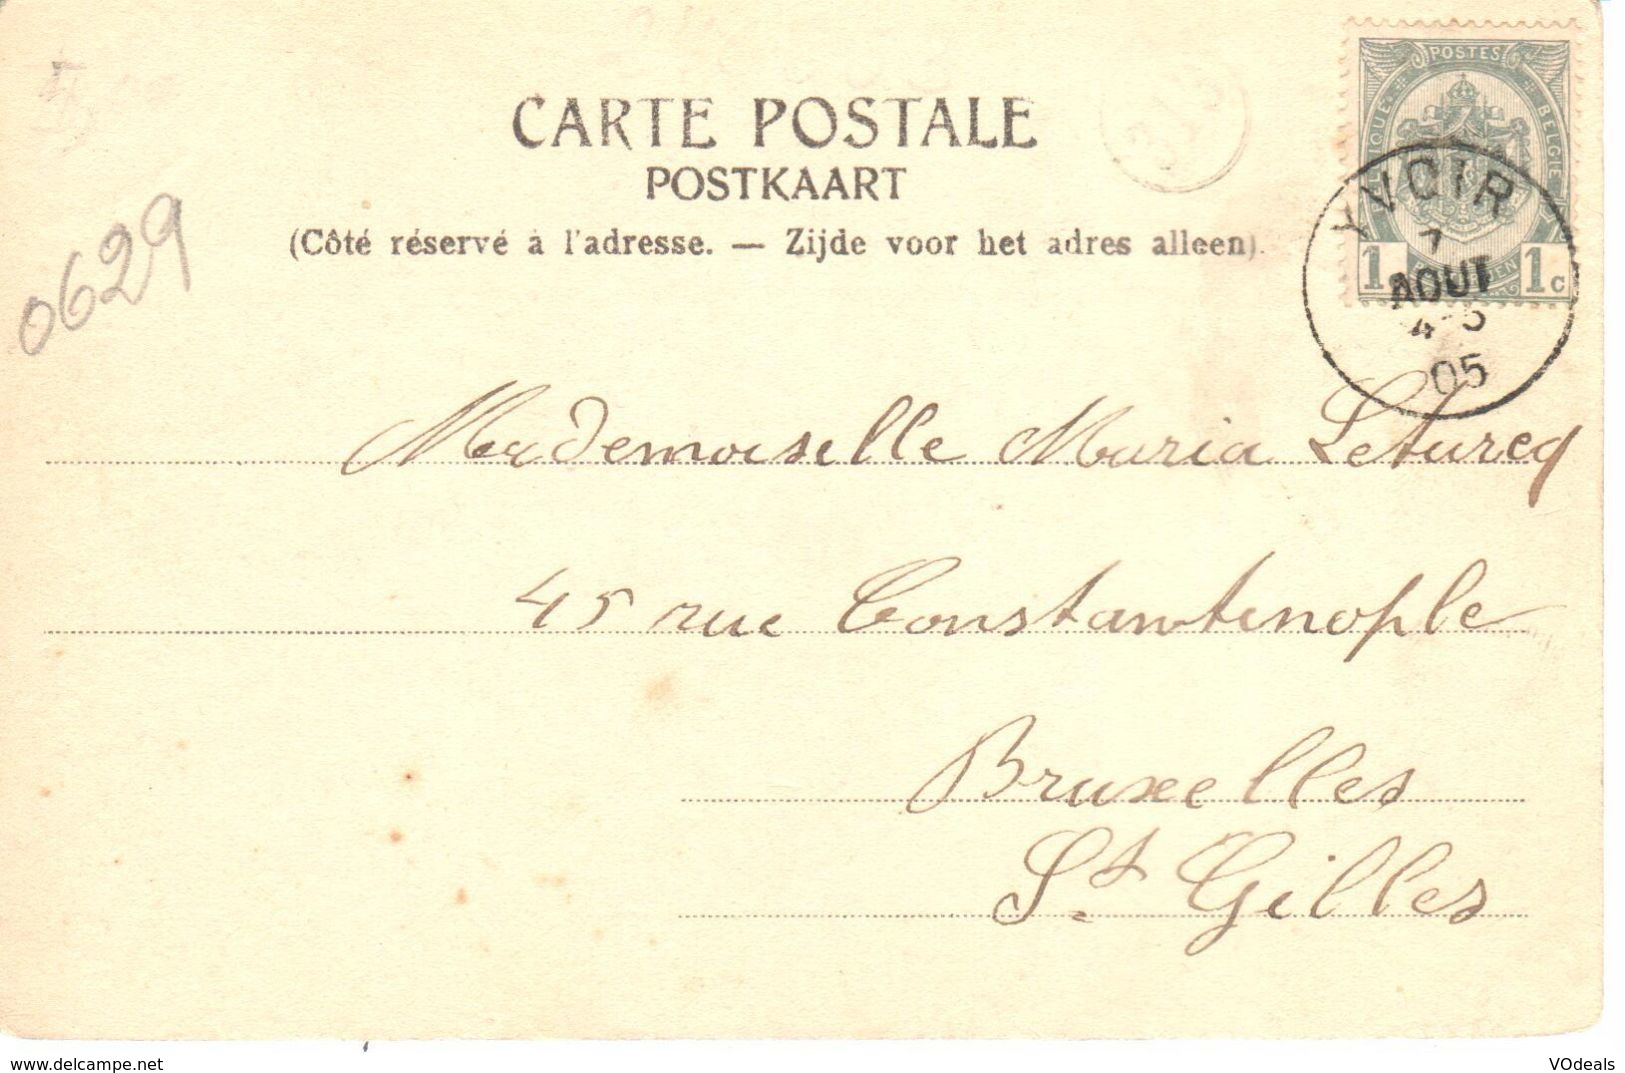 CARTE POSTALE
POSTKAART
(Côté réservé à l'adresse. — Zijde voor het adres alleen).
0629
POSTES
BELGIE
1 1c
YVOIR
7
AOUT
4-5
05
Mademoiselle Maria Leturcq
45 rue Constantinople
Bruxelles
St. Gilles
www.delcampe.net
VOdeals